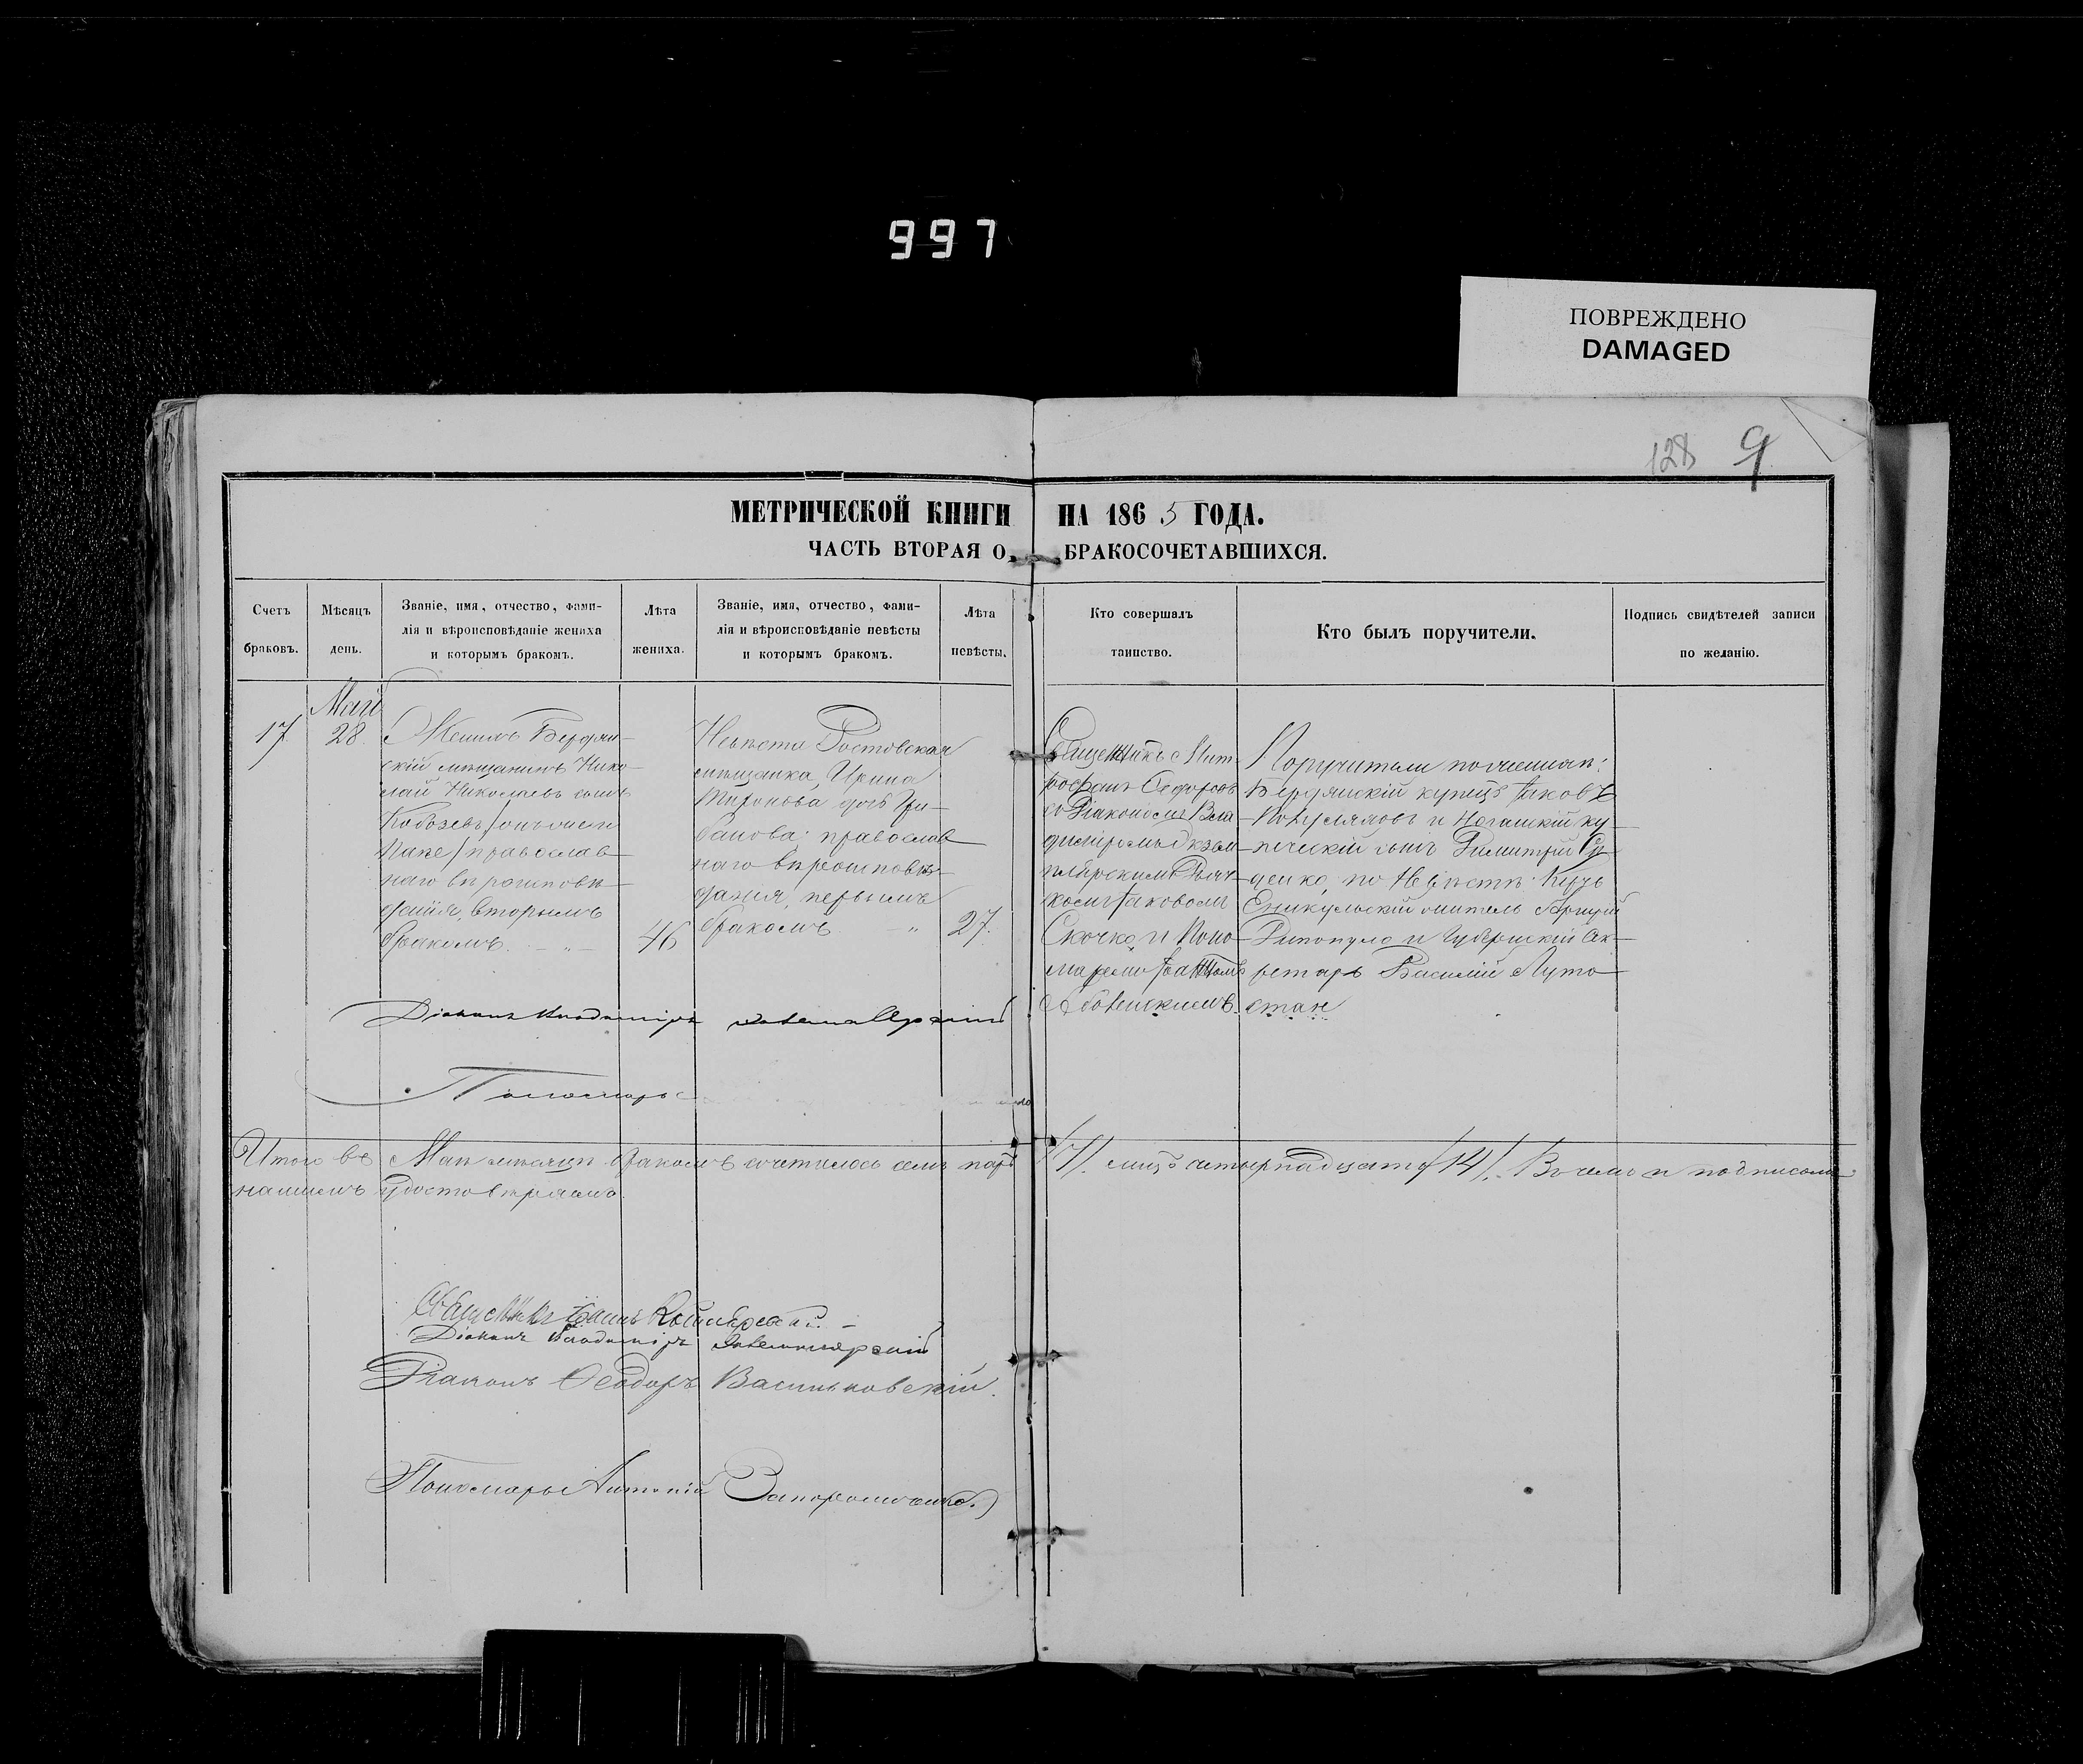 997
ПОВРЕЖДЕНО
DAMAGED
128 9
МЕТРИЧЕСКОЙ КНИГИ НА 1865 ГОДА.
ЧАСТЬ ВТОРАЯ О БРАКОСОЧЕТАВШИХСЯ.
Счетъ
браковъ.
Мѣсяцъ
день.
Званіе, имя, отчество, фами-
лія и вѣроисповѣданіе жениха
и которымъ бракомъ.
Лѣта
жениха.
Званіе, имя, отчество, фами-
лія и вѣроисповѣданіе невѣсты
и которымъ бракомъ.
Лѣта
невѣсты.
Кто совершалъ
таинство.
Кто былъ поручители.
Подпись свидѣтелей записи
по желанію.
Май
17. 28.
Женихъ Бердян-
скій мѣщанинъ Нико-
лай Николаевъ сынъ
Кобозевъ
православ-
наго вѣроисповѣ-
данія, вторымъ
бракомъ. - „ -
46
Невѣста Ростовская
мѣщанка, Ирина
Миронова дочь Гри-
банова; православ-
наго вѣроисповѣ-
данія, первымъ
бракомъ. - „
27.
Священникъ Мит-
рофанъ Ѳедоровъ
съ Діакономъ Вла-
диміромъ
Дьяч-
комъ Іаковомъ
Скочко, и Поно-
маремъ
Поручители по женихѣ:
Бердянскій купецъ Іаковъ
и Ногайскій ку-
печескій сынъ Димитрій Су-
денко, по Невѣстѣ: Керчь
Еникульскій житель
и Губернскій Сек-
ретарь Василій Луто-
Діаконъ Владиміръ
Пономарь
Итого въ Маѣ мѣсяцѣ бракомъ сочеталось семь паръ /7/. лицъ четырнадцать /14/. Въ чемъ и подписомъ
нашимъ удостовѣряемъ.
Священникъ
Діаконъ Владиміръ
Діаконъ Ѳеодоръ Васильковскій.
Пономарь Антоній Запорожченко.